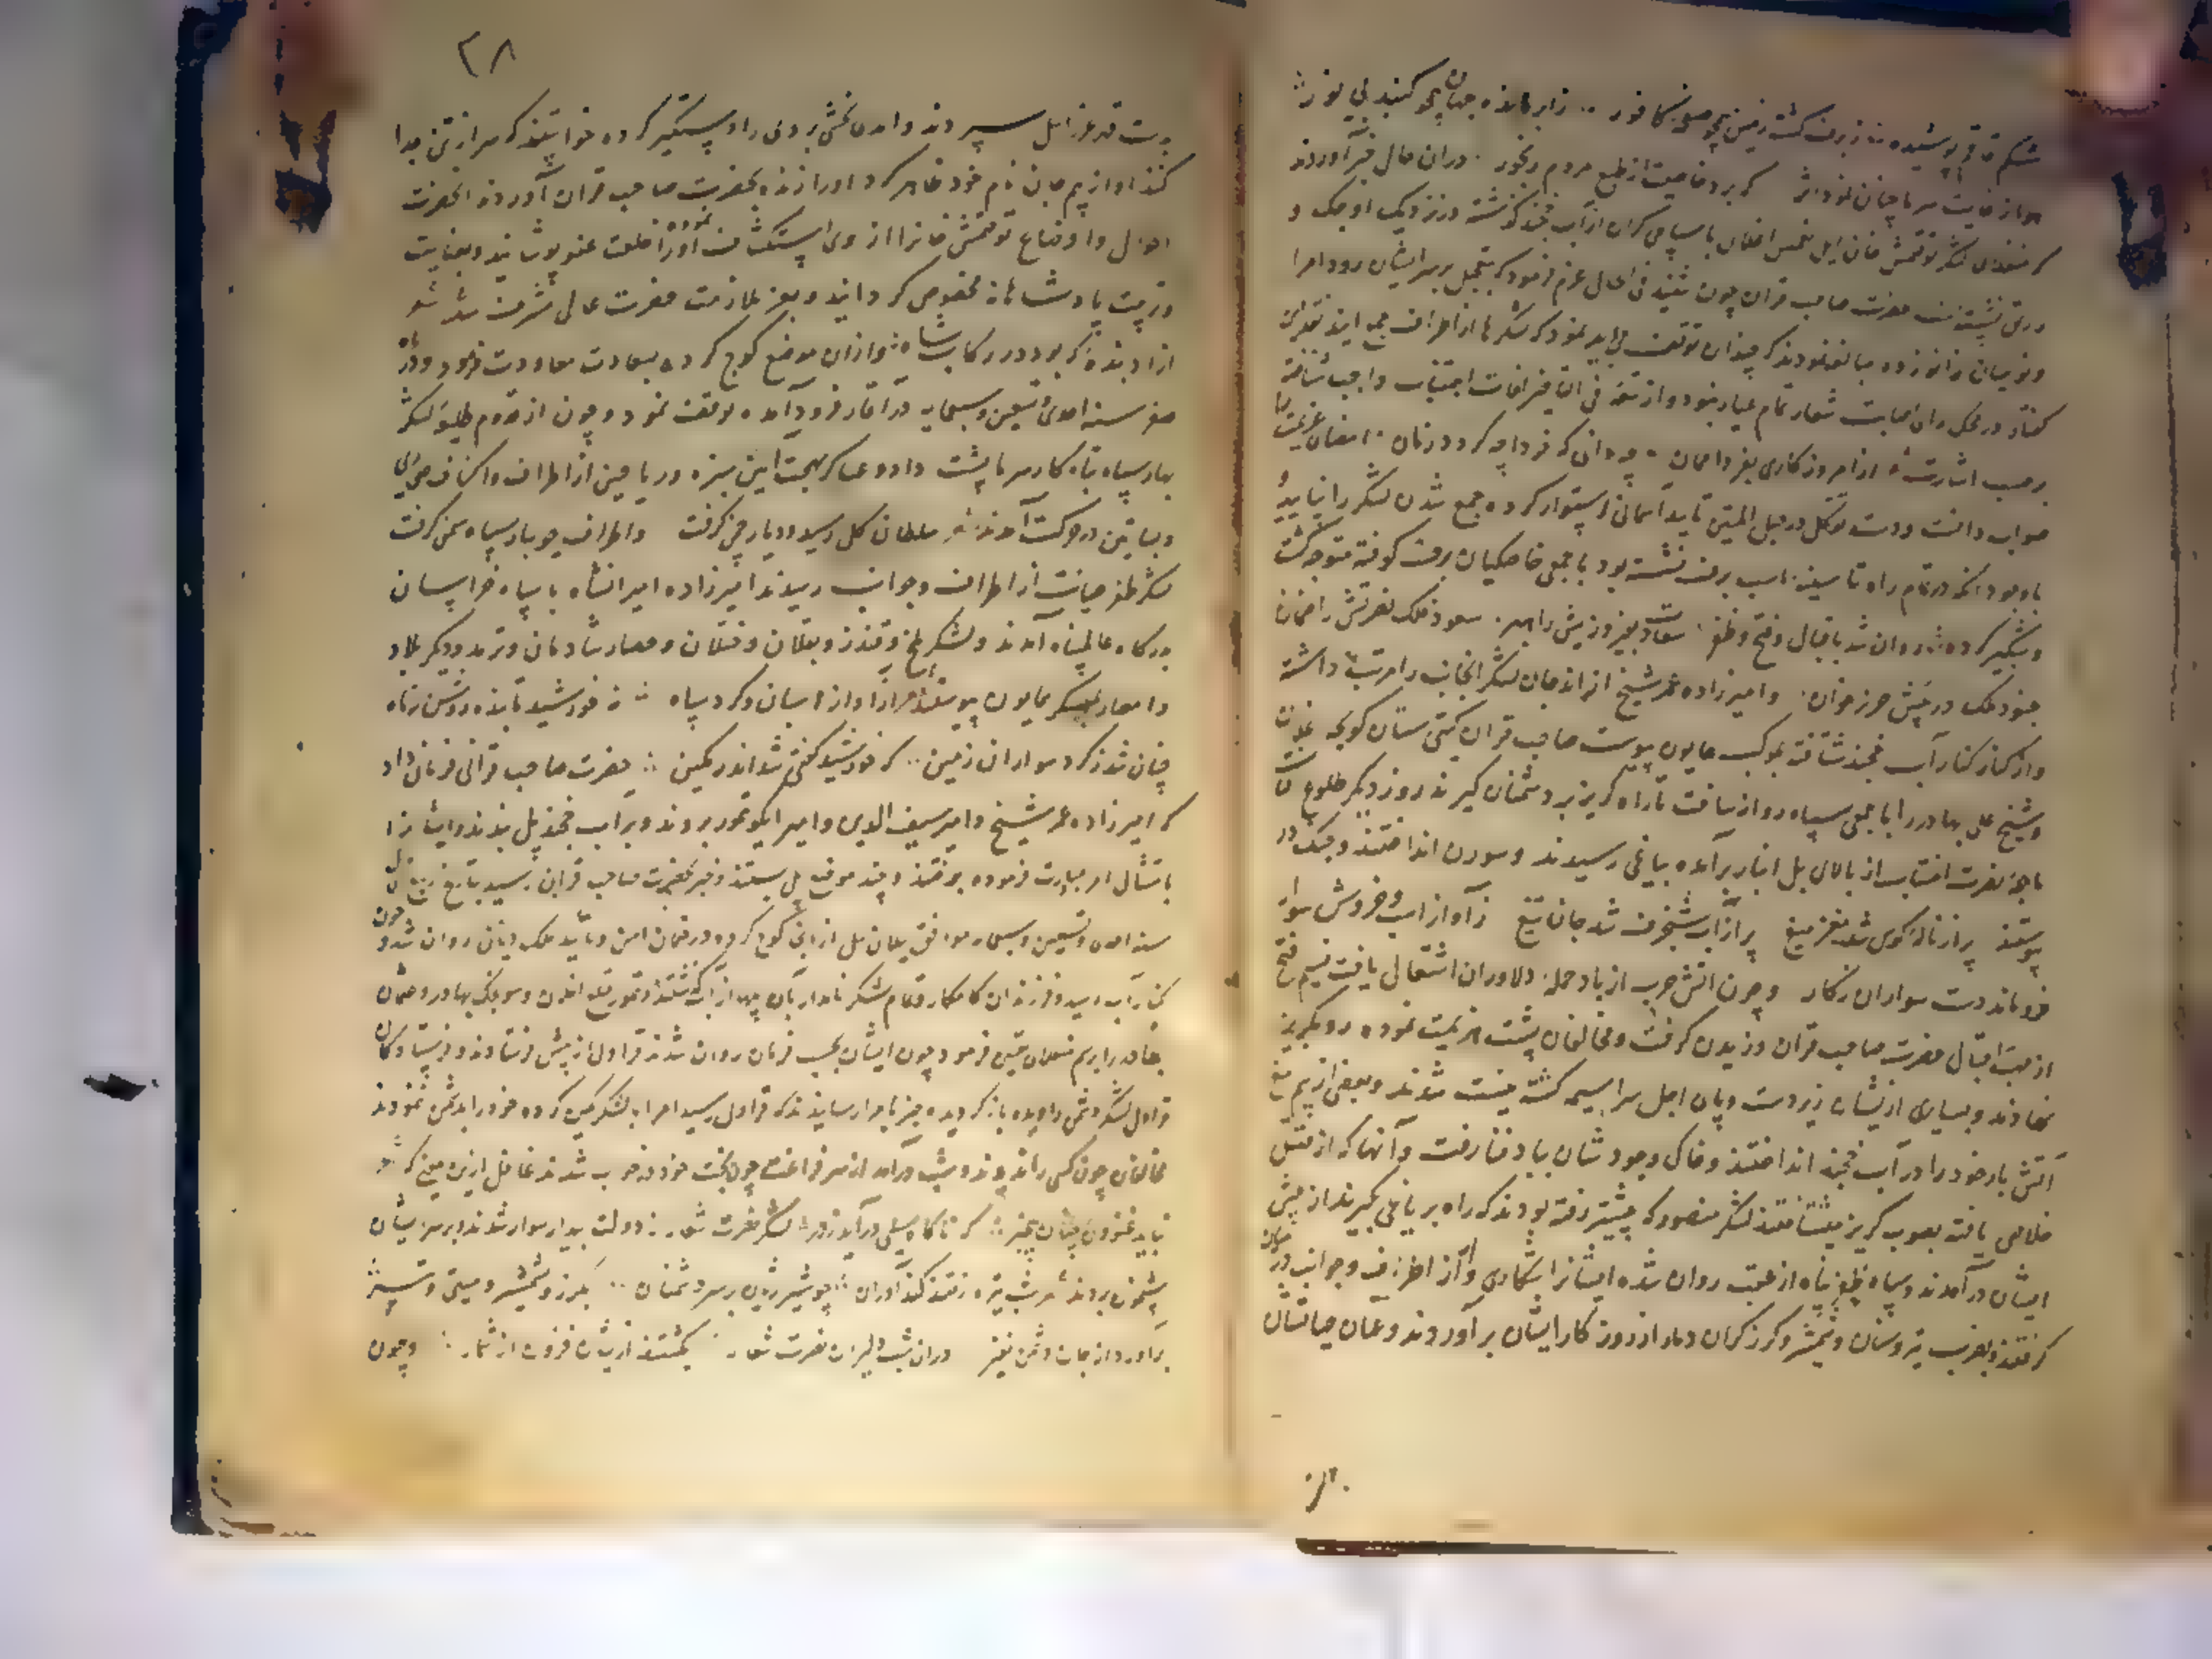 شکم قاقم پوشیده ∴ ز برف گشت زمین همچو صحن کافور ∴ ز ابر مانده جهان همچو گنبد بی نور
هوا ز غایت سرما چنان نمود اثر که برد خاصیت از طبع مردم رنجور . در آن حال خبر آوردند
که منغلای لشکر توقتمش خان ایل یغمس اغلان با سپاهی گران از آب خجند گذشته در نزدیک اوجک و
ورتق نشسته است حضرت صاحب قران چون شنید فی الحال عزم فرمود که بتعجیل بر سر ایشان رود امرا
و نوییان زانو زده مبالغه نمودند که چندان توقف می باید نمود که لشکرها از اطراف جمع آیند
گفتار در محک رای اصابت شعار تمام عیار ننمود و از مقتضی فی التاخیر آفات اجتناب واجب شناخته
برحسب اشارت از امروز کاری بفردا ممان ∴ چه دانی که فردا چه گردد زمان . امضای عزیمت را
صواب دانست و دست توکل در حبل المتین تایید آسمانی استوار کرده جمع شدن لشکر را نپایید و
باوجود آنکه در تمام راه تا سینه اسب برف نشسته بود با جمعی خاصگیان برف کوفته متوجه گشت
و شبگیر کرده روان شد باقبال و فتح و ظفر . سعادت بفیروزیش راهبر . سعود فلک نصرتش را ضمان
جنود ملک در پیش حرز خوان . و امیرزاده عمر شیخ از اندجان لشکر آنجانب را مرتب داشته
و از کنار کنار آب خجند شتافته بموکب همایون پیوست صاحب قران گیتی ستان کونجه اغلان
و شیخ علی بهادر را با جمعی سپاه روانه ساخت تا راه گریز بر دشمنان گیرند روز دیگر طلوع
ماهچه نصرت افتاب از بالای پل انبار برآمده بیاغی رسیدند و سورن انداختند و جنگ در
پیوستند پر از ناله کوس شد مغز میغ پر از آب شنجرف شد جان تیغ ز آواز اسب و خروش سوار
فروماند دست سواران ز کار و چون آتش حرب از باد حمله دلاوران اشتعال یافت نسیم فتح
از مهب اقبال حضرت صاحب قران وزیدن گرفت و مخالفان پشت هزیمت نموده رو بگریز
نهادند و بسیاری از ایشان زیر دست و پای اجل سراسیمه گشته نیست شدند و بعضی از بیم تیغ
آتش بار خود را در آب خجند انداختند و خاک وجودشان بباد فنا رفت و آنها که از قتل
خلاصی یافته بصوب گریز میشتافتند لشکر منصور که پیشتر رفته بودند که راه بر یاغی گیرند از پیش
ایشان درآمدند و سپاه ظفر پناه از عقب روان شده ایشانرا بشکاری و از اطراف و جوانب در میان
گرفتند و بضرب تیر و سنان و شمشیر و گرز گران دمار از روزگار ایشان برآوردند و عنان حیاتشان
۳۸
بدست قهر عزرائیل سپردند و ایدی بخشی بردی را دستگیر کرده خواستند که سر از تن جدا
کنند او از بیم جان نام خود ظاهر کرد اورا زنده بحضرت صاحب قران آوردند آنحضرت
احوال و اوضاع توقتمش خانرا از وی استکشاف نموده اورا خلعت عفو پوشانید و بعنایت
و تربیت پادشاهانه مخصوص گردانید و بعز ملازمت حضرت عالی مشرف شد شعر
آزاد بنده که بود در رکاب شاه ∴ و از آن موضع کوچ کرده بسعادت معاودت فرمود و در ماه
صفر سنه احدی و تسعین و سبعمایه در آقار فرود آمده توقف نمود و چون از قدوم طلیعه لشکر
بهار سپاه تباه کار سرما پشت داد و عساکر بهجت آیین سبزه و ریاحین از اطراف و اکناف صحرای
و بساتین در حرکت آمدند شعر سلطان گل رسید و دیار چمن گرفت و اطراف جویبار سپاه سمن گرفت
لشکر ظفر حمایت از اطراف و جوانب رسیدند امیرزاده امیرانشاه با سپاه خراسان
بدرگاه عالمپناه آمدند و لشکر بلخ و قندز و بقلان و ختلان و حصار شادمان و ترمد و دیگر بلاد
و امصار بمعسکر همایون پیوستند هرا ز آواز اسبان و گرد سپاه ∴ نه خورشید تابنده روشن نه ماه
چنان شد ز گرد سواران زمین .. که خورشید گفتی شد اندر کمین ∴ حضرت صاحب قرانی فرمان داد
که امیرزاده عمر شیخ و امیر سیف الدین و امیر ایکو تمور بروند و بر آب خجند پل بندند و ایشانرا
بامتثال امر مبادرت فرموده برفتند و چند موضع پل بستند و خبر بحضرت صاحب قران رسید بتاریخ ربیع الاول
سنه احدی و تسعین و سبعمایه موافق ییلان ئیل از آنجا کوچ کرده در ضمان امن و تایید ملک دیان روان شد و چون
بکنار آب رسید و فرزندان کامکار و تمام لشکر نامدار بآن پل از آب گذشتند و تمور قتلغ اغلن و سونجک بهادر و عثمان
بهادر را برسم منغلای تعیین فرمود چون ایشان بحسب فرمان روان شدند قراول از پیش فرستادند و فرستادگان
قراول لشکر دشمن را دیده باز گردیده خبر بامرا رسانیدند که قراول رسید امرا با لشکر کمین کرده خود را بدشمن ننمودند
مخالفان چون کسی را ندیدند و شب درآمد از سر فراغت چون بخت خود در خواب شدند غافل از این معنی که شعر
نباید غنودن چنان بیخبر ∴ که ناگاه سیلی درآید ز در ∴ لشکر نصرت شعار ز دولت بیدار سوار شدند و بر سر ایشان
شبیخون بردند شعر شب تیره رفتند گندآوران ∴ چو شیر ژیان بر سر دشمنان .. بگرز و شمشیر و میتین و تبر
برآورد از جان دشمن نفیر در آن شب دلیران نصرت شعار ∴ بکشتند از ایشان فزون از شمار ∴ و چون